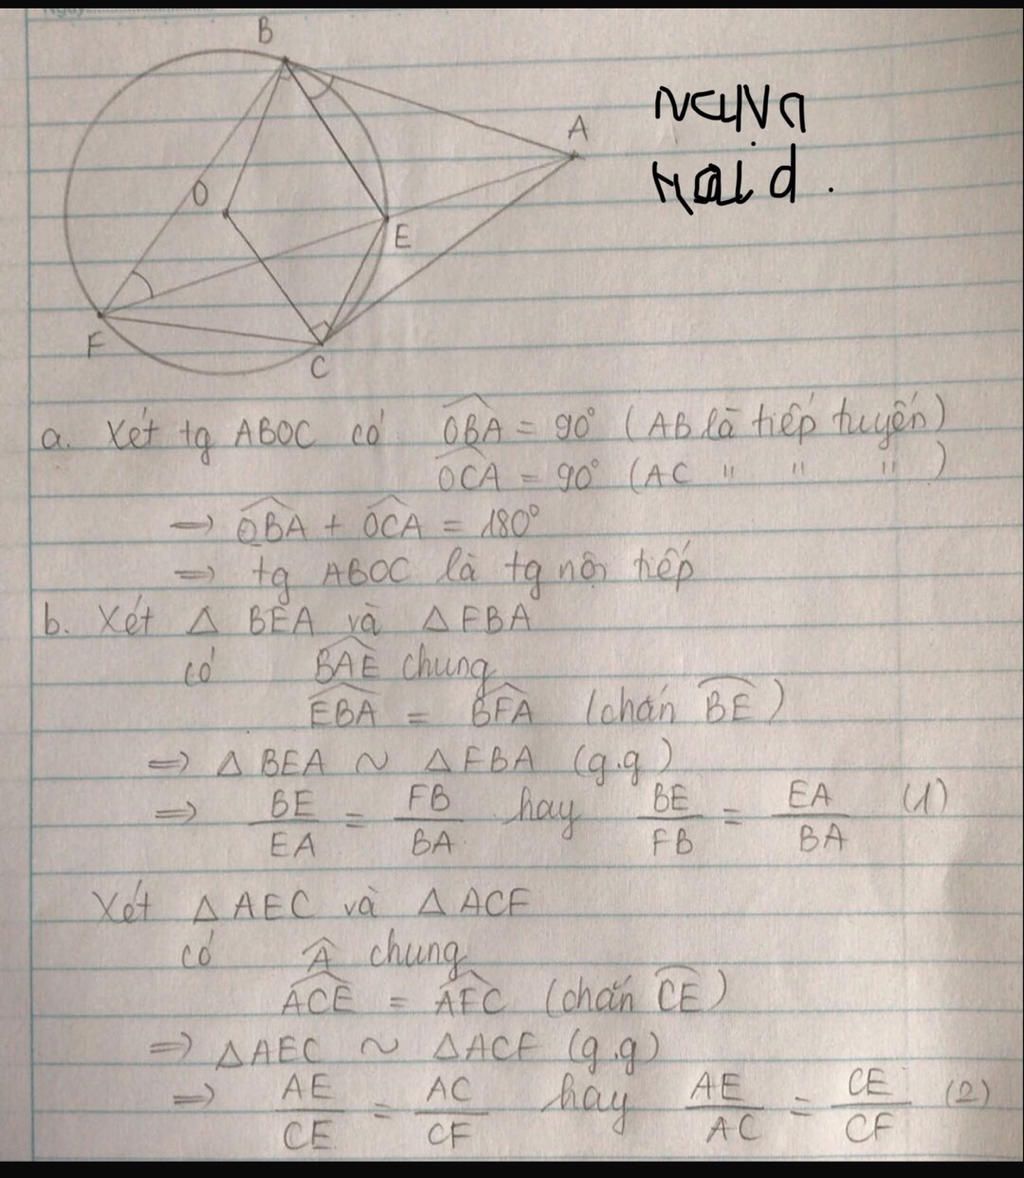 B
A
O
E
F
C
a. Xét tg ABOC có OBA = 90° (AB là tiếp tuyến)
OCA = 90° (AC " " ")
=> OBA + OCA = 180°
=> tg ABOC là tg nội tiếp
b. Xét Δ BEA và Δ FBA
có BAE chung
EBA = BFA (chắn BE)
=> Δ BEA ~ Δ FBA (g.g)
=> BE/EA = FB/BA hay BE/FB = EA/BA (1)
Xét Δ AEC và Δ ACF
có A chung
ACE = AFC (chắn CE)
=> Δ AEC ~ Δ ACF (g.g)
=> AE/CE = AC/CF hay AE/AC = CE/CF (2)